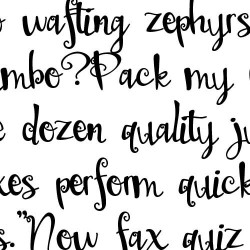 wafting zephyrs
mbo?Pack my
dozen quality ju
xes perform quick
s."Now fax quiz